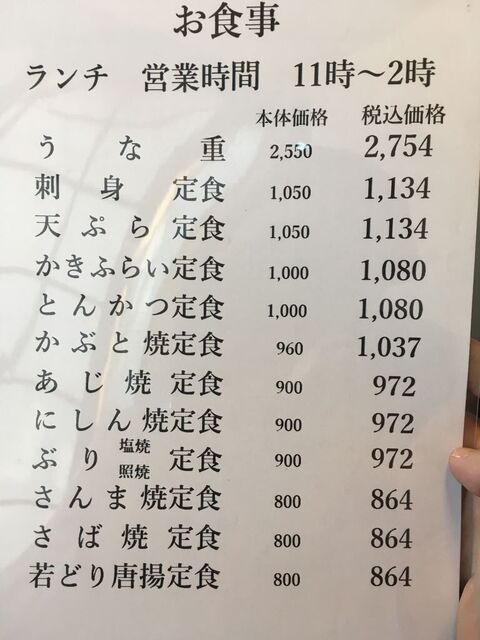 お食事
ランチ 営業時間 11時〜2時
本体価格 税込価格
うな重 2,550 2,754
刺身定食 1,050 1,134
天ぷら定食 1,050 1,134
かきふらい定食 1,000 1,080
とんかつ定食 1,000 1,080
かぶと焼定食 960 1,037
あじ焼定食 900 972
にしん焼定食 900 972
ぶり 塩焼 照焼 定食 900 972
さんま焼定食 800 864
さば焼定食 800 864
若どり唐揚定食 800 864